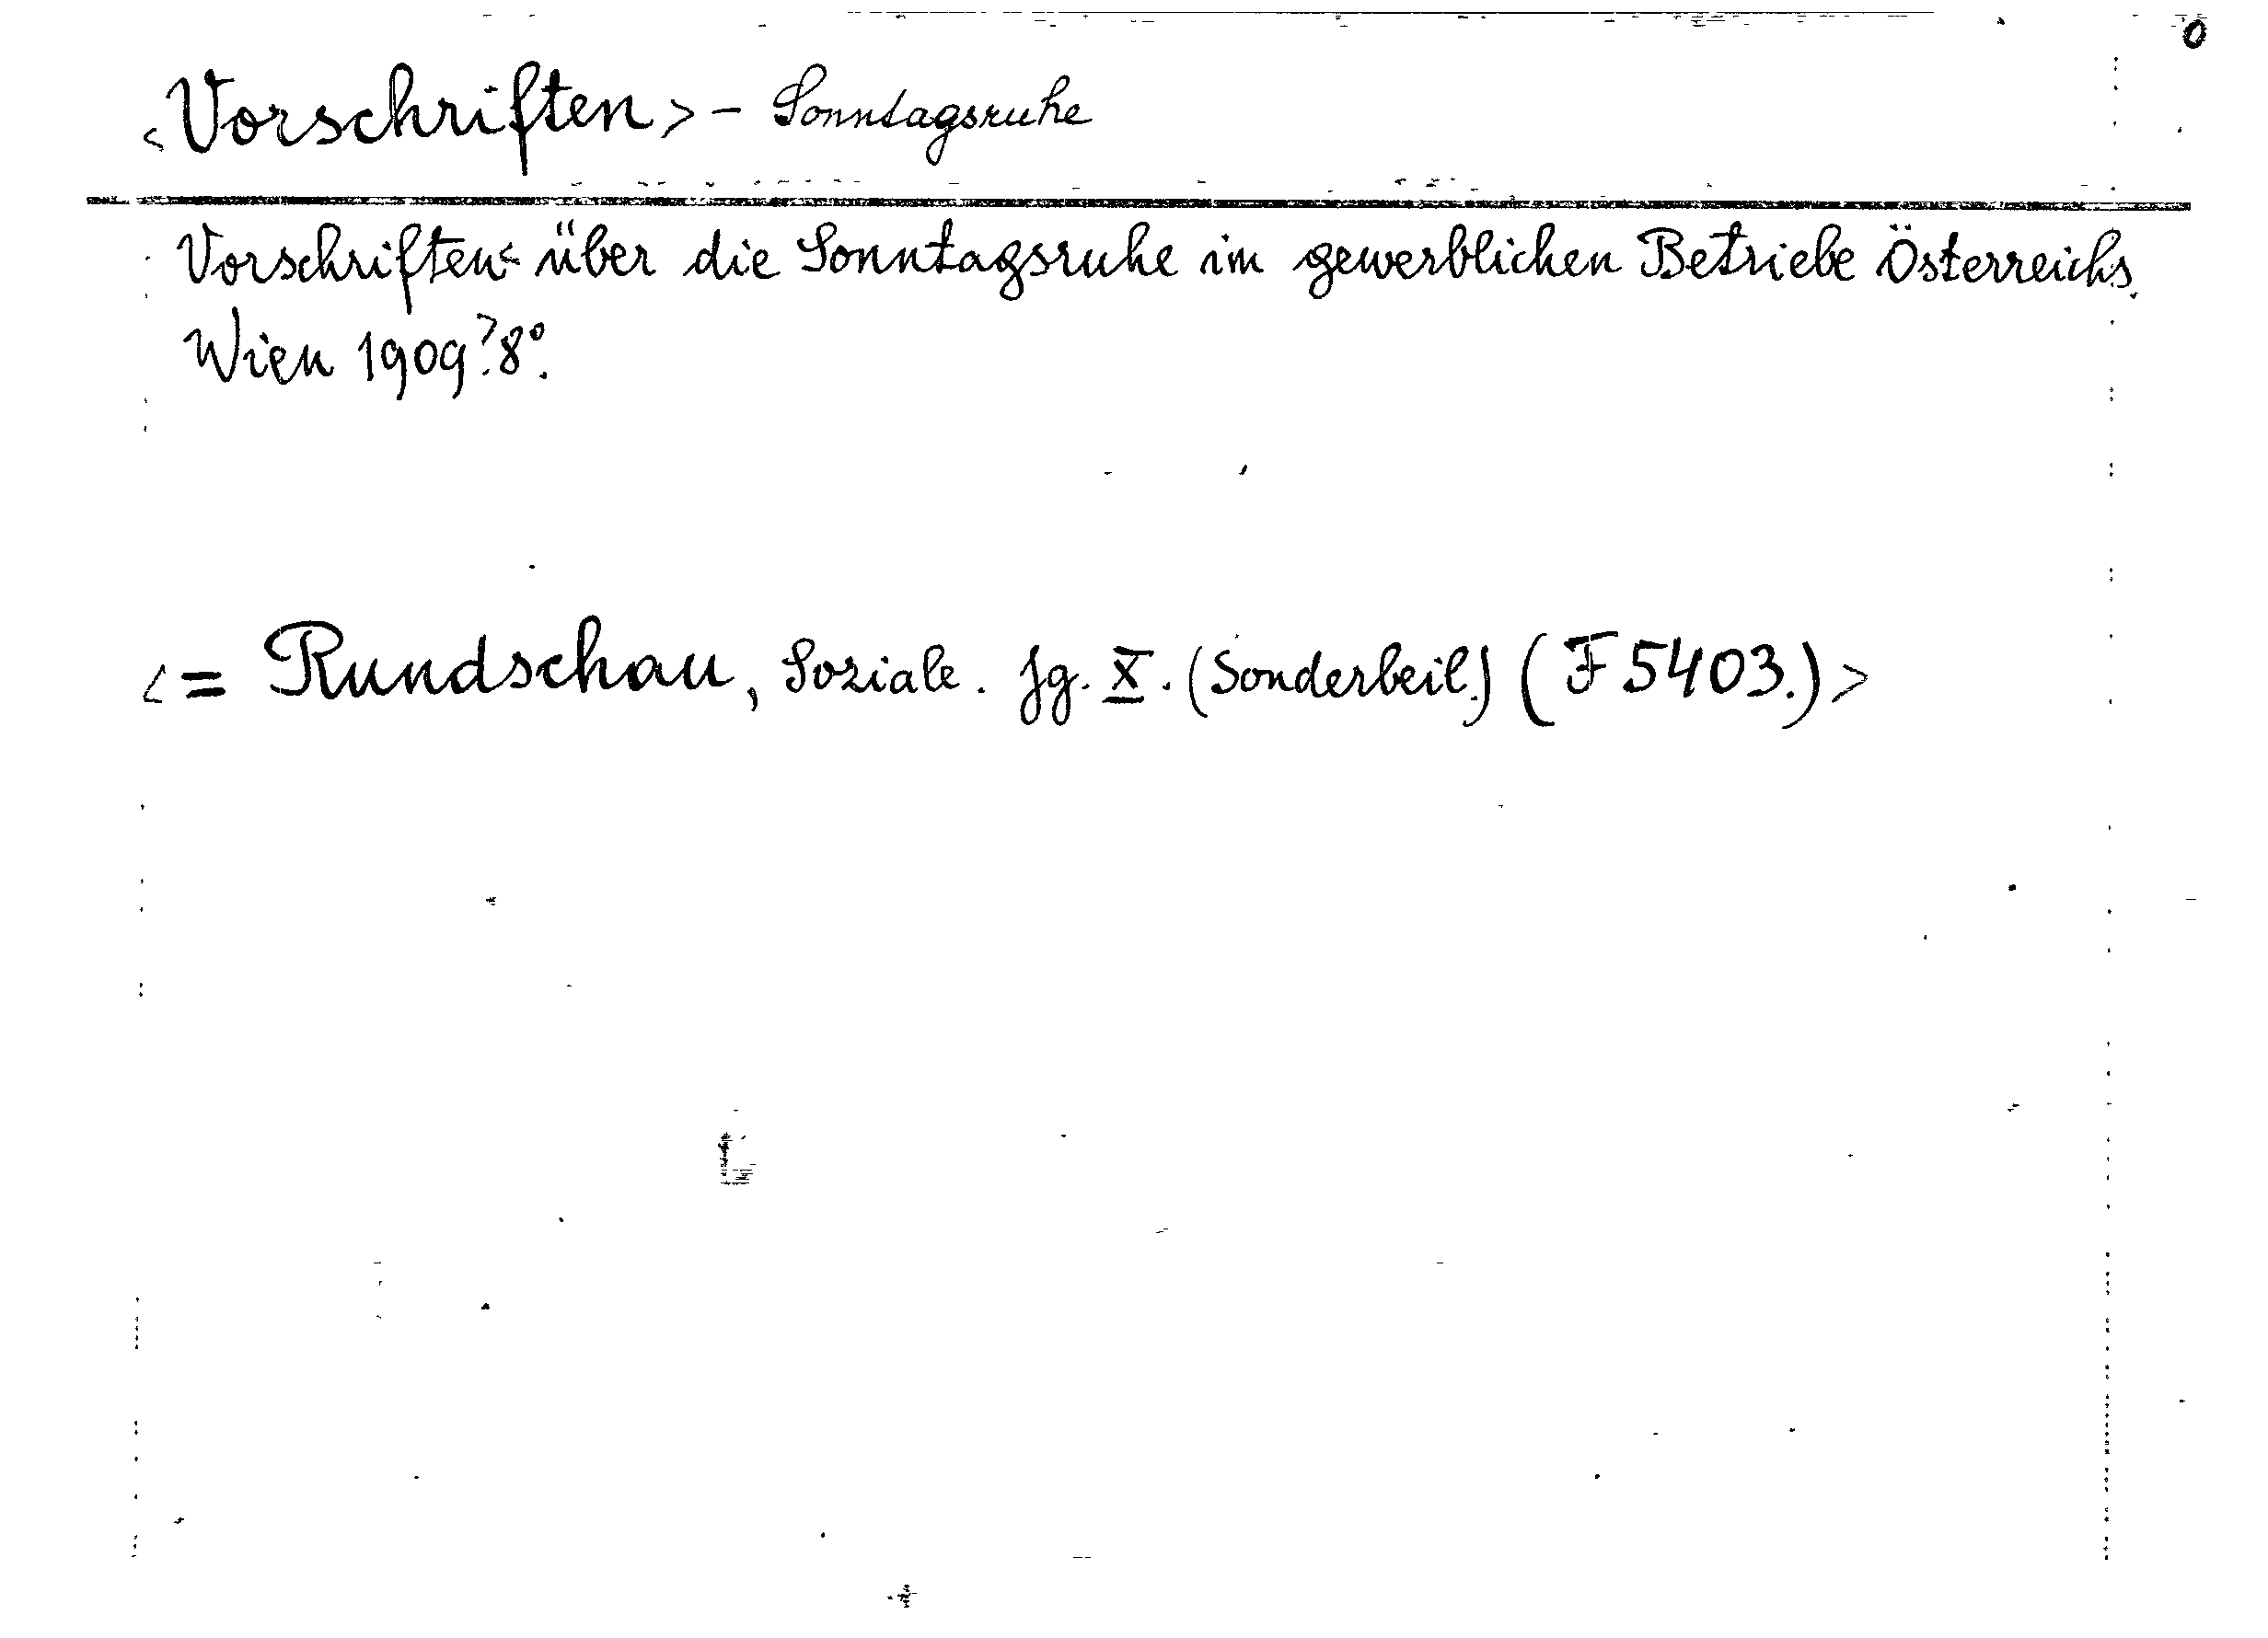 <Vorschriften> - Sonntagsruhe
Vorschriften< über die Sonntagsruhe im gewerblichen Betriebe Österreichs.
Wien 1909? 8°.
<= Rundschau, Soziale. Jg. X. (Sonderbeil.) (F 5403.)>